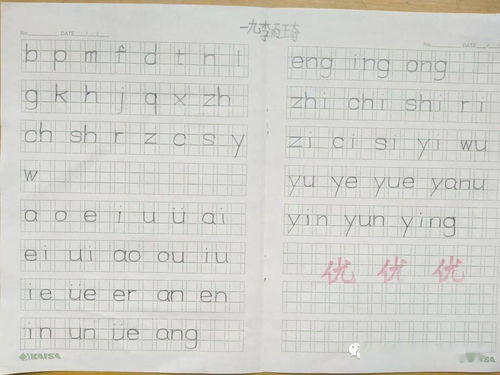 No. DATE
b p m f d t n l
g k h j q x zh
ch sh r z c s y
w
a o e i u ü ai
ei ui ao ou iu
ie üe er an en
in un üe ang
KAISA
一九李
No. DATE
eng ing ong
zhi chi shi ri
zi ci si yi wu
yu ye yue yanu
yin yun ying
优 优 优